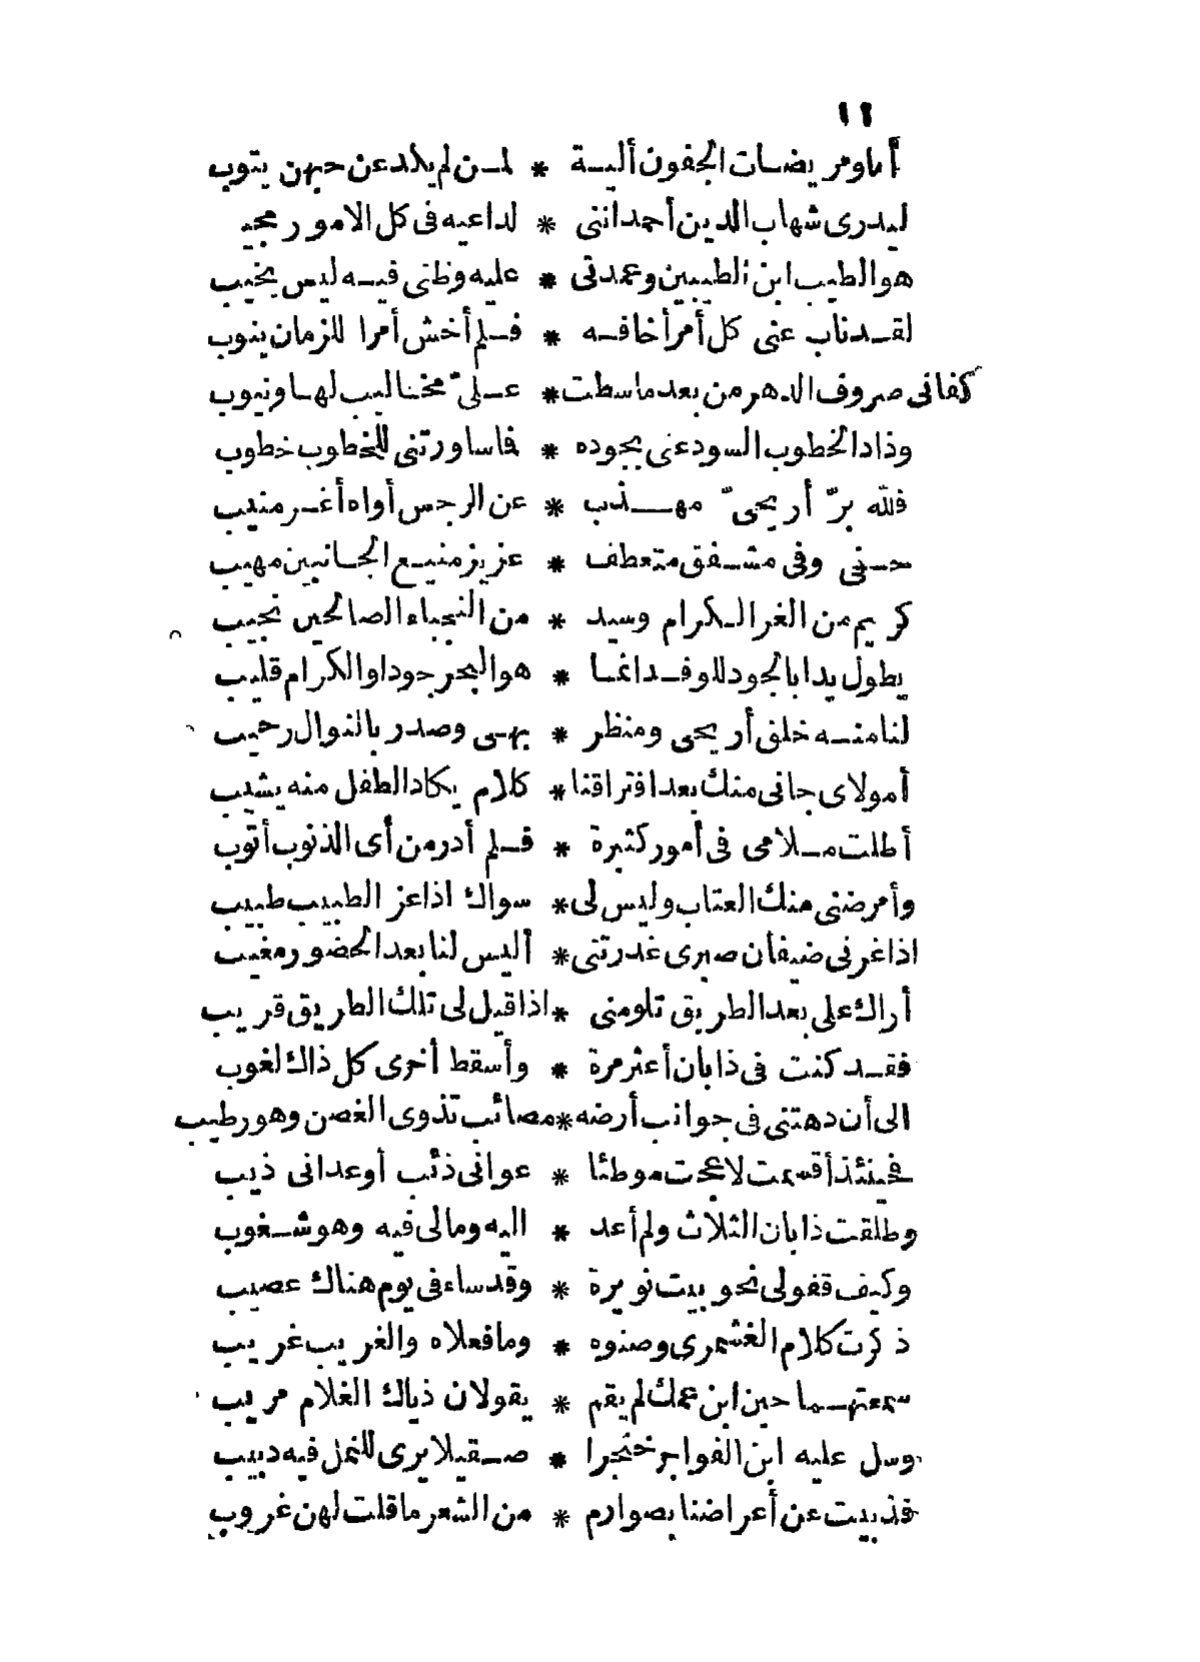 ١٢
أما ومريضات الجفون ألية * لمن لم يكد عن حبهن يتوب
ليدرى شهاب الدين أحمد اننى * لداعيه فى كل الامور مجيب
هو الطيب ابن الطيبين وعمدتى * عليه وظنى فيه ليس يخيب
لقد ناب عنى كل أمر أخافه * فلم أخش أمرا للزمان ينوب
كفانى صروف الدهر من بعد ما سطت * علىّ مخاليب لها ونيوب
وذاد الخطوب السود عنى بجوده * فما ساورتنى للخطوب خطوب
فلله برّ أريحىّ مهذب * عن الرجس أواه أغر منيب
حفى وفى مشفق متعطف * عزيز منيع الجانبين مهيب
كريم من الغر الكرام وسيد * من النجباء الصالحين نجيب
يطول يدا بالجود للوفد انما * هو البحر جودا والكرام قليب
لنا منه خلق أريحى ومنظر * بهى وصدر بالنوال رحيب
أمولاى جانى منك بعد افتراقنا * كلام يكاد الطفل منه يشيب
أطلت ملامى فى أمور كثيرة * فلم أدر من أى الذنوب أتوب
وأمرضنى منك العتاب وليس لى * سواك اذا عز الطبيب طبيب
اذا غر فى ضيفان صبرى غدرتنى * أليس لنا بعد الحضور مغيب
أراك على بعد الطريق تلومنى * اذا قيل لى تلك الطريق قريب
فقد كنت فى ذا بان أعثر مرة * وأسقط أخرى كل ذاك لغوب
الى أن دهتنى فى جوانب أرضه * مصائب تذوى الغصن وهو رطيب
فحينئذ أقسمت لا عجت موطئا * عوانى ذئب أو عدانى ذيب
وطلقت ذا بان الثلاث ولم أعد * اليه ومالى فيه وهو شغوب
وكيف قفولى نحو بيت نويرة * وقد ساءنى يوم هناك عصيب
ذكرت كلام الغشمرى وصنوه * وما فعلاه والغريب غريب
سمعتهما حين ابن عمك لم يقم * يقولان ذياك الغلام مريب
وسل عليه ابن الفواجر خنجرا * صقيلا يرى للنمل فيه دبيب
فذبيت عن أعراضنا بصوارم * من الشعر ما قلت لهن غروب